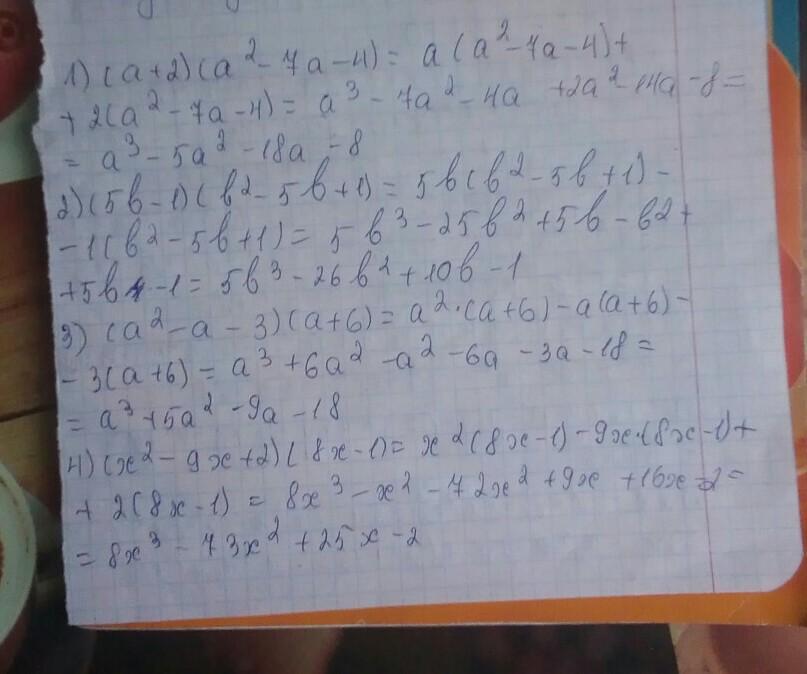 1) (a+2)(a²-7a-4)= a(a²-7a-4)+
+2(a²-7a-4)= a³-7a²-4a +2a²-14a-8=
= a³-5a²-18a-8
2)(5b-1)(b²-5b+1)= 5b(b²-5b+1)-
-1(b²-5b+1)= 5b³-25b²+5b-b2+
+5b-1= 5b³-26b²+10b-1
3) (a²-a-3)(a+6)= a²·(a+6)-a(a+6)-
-3(a+6)= a³+6a²-a²-6a-3a-18=
= a³+5a²-9a-18
4)(x²-9x+2)(8x-1)= x²(8x-1)-9x·(8x-1)+
+ 2(8x-1) = 8x³-x²-72x²+9x+16x-2=
= 8x³-73x²+25x-2